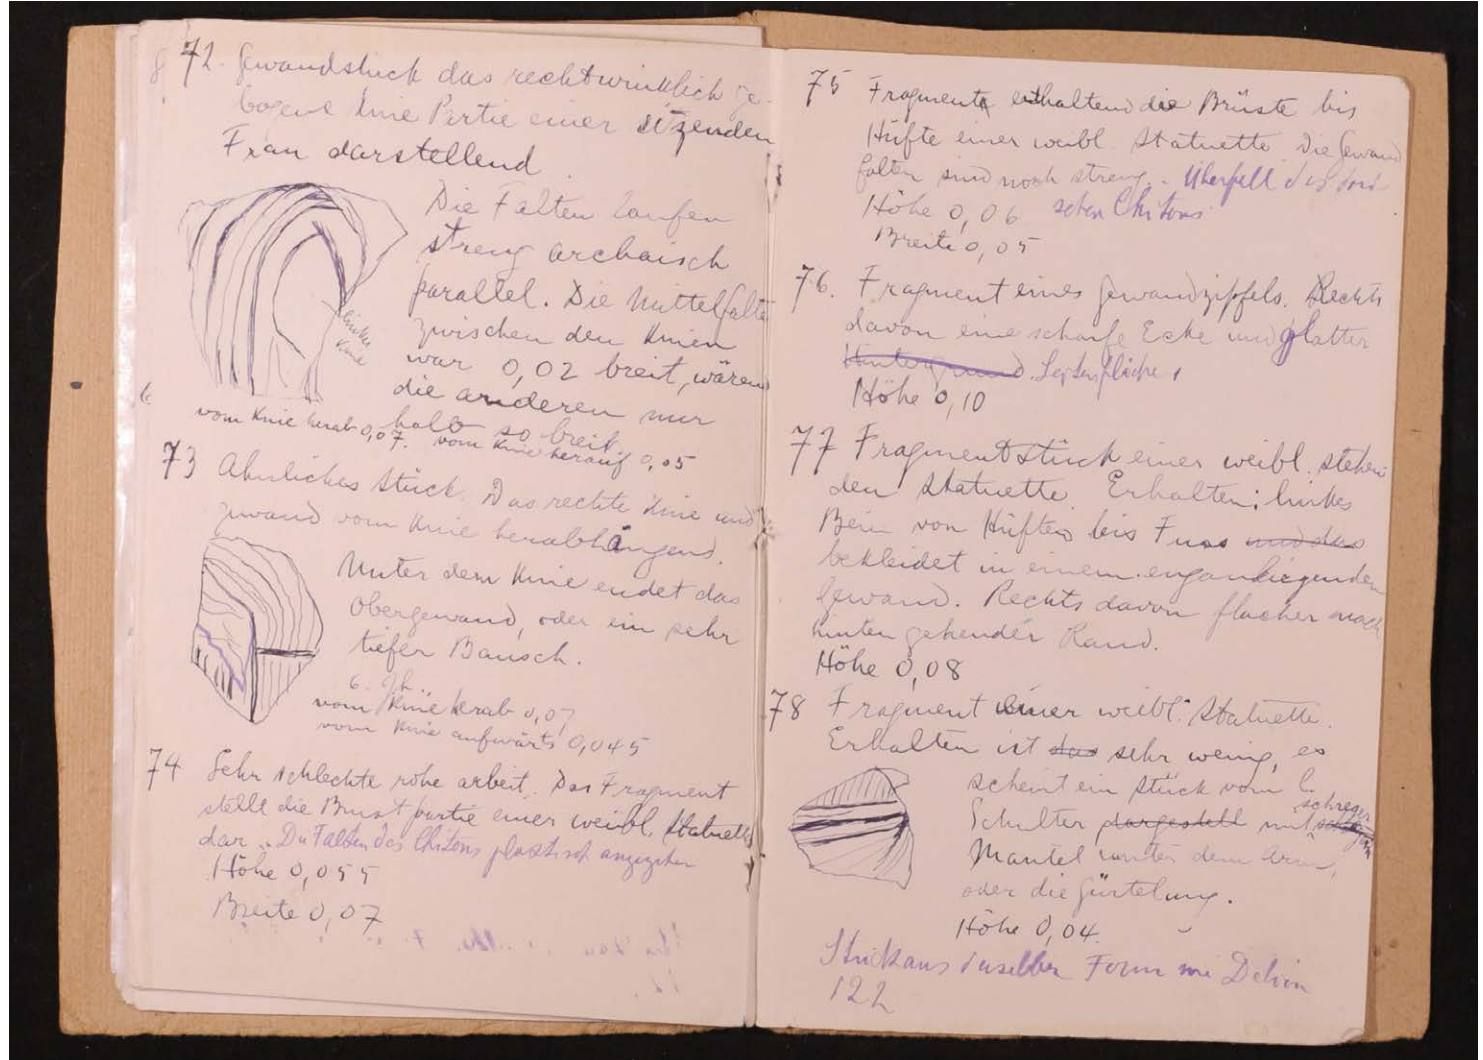 72. Gewandstück das rechtwinklich ge-
bogene Knie Partie einer sitzenden
Frau darstellend
Die Falten laufen
streng archaisch
parallel. Die Mittelfalte
zwischen den Knien
war 0,02 breit, wärend
die anderen nur
halb so breit.
linkes
Knie
vom Knie herab 0,07. vom Knie herauf 0,05
73 Ähnliches Stück. Das rechte Knie und
gewand vom Knie herabhängend.
Unter dem Knie endet das
Obergewand, oder ein sehr
tiefer Bausch.
6. Jh.
vom Knie herab 0,07
vom Knie aufwärts 0,045
74 Sehr schlechte rohe arbeit. Das Fragment
stellt die Brust partie einer weibl. Statuette
dar. Die Falten des Chitons plastisch angegeben
Höhe 0,055
Breite 0,07
75 Fragment enthaltend die Brüste bis
Hüfte einer weibl. Statuette. Die Gewand
falten sind noch streng. Überfall des dori-
schen Chitons
Höhe 0,06
Breite 0,05
76. Fragment eines Gewandzipfels. Rechts
davon eine scharfe Ecke und glatter
Hintergrund Seitenfläche.
Höhe 0,10
77 Fragmentstück einer weibl. stehen
den Statuette. Erhalten: linkes
Bein von Hüften bis Fuss und das
bekleidet in einem enganliegenden
Gewand. Rechts davon flacher nach
hinten gehender Rand.
Höhe 0,08
78 Fragment einer weibl. Statuette.
Erhalten ist das sehr wenig, es
scheint ein Stück vom l.
Schulter dargestellt mit schrägem
Mantel unter dem Arm,
oder die Gürtelung.
Höhe 0,04.
Stück aus derselben Form wie
122